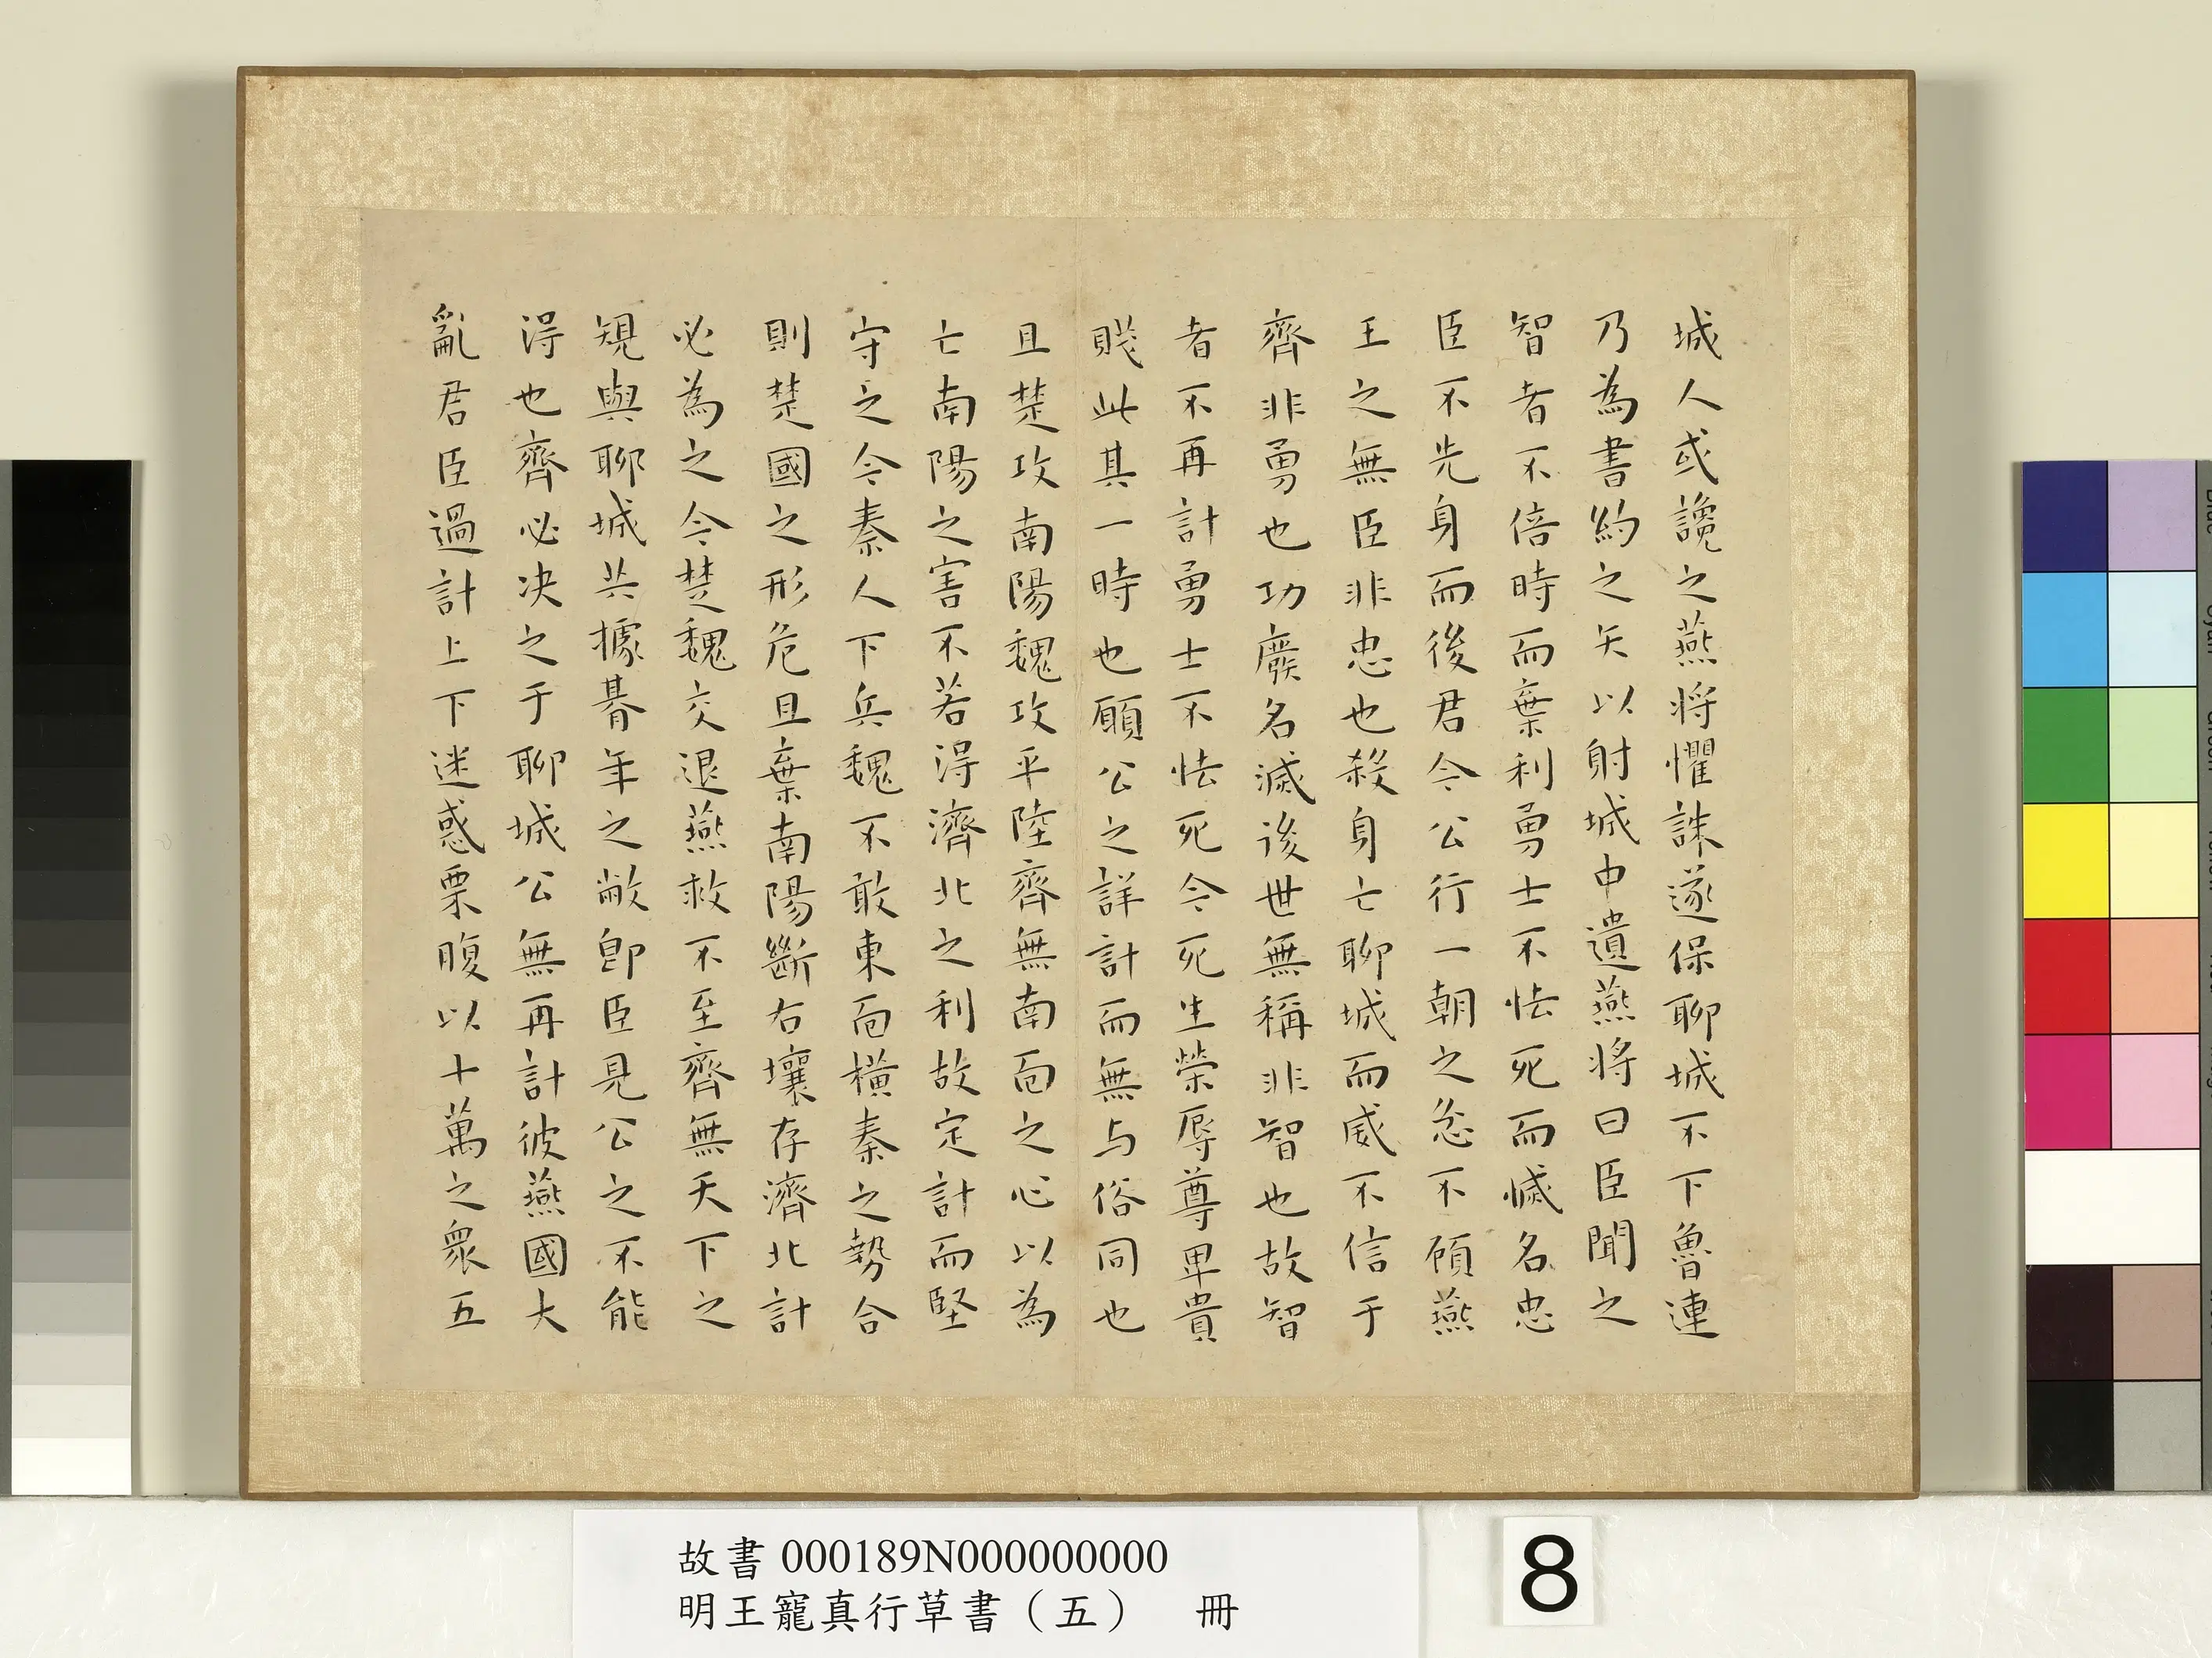 城人或讒之燕将懼誅遂保聊城不下魯連
乃為書約之矢以射城中遺燕将曰臣聞之
智者不倍時而棄利勇士不怯死而滅名忠
臣不先身而後君今公行一朝之忿不顧燕
王之無臣非忠也殺身亡聊城而威不信于
齊非勇也功廢名滅後世無稱非智也故智
者不再計勇士不怯死今死生榮辱尊卑貴
賤此其一時也願公之詳計而無与俗同也
且楚攻南陽魏攻平陸齊無南面之心以為
亡南陽之害不若得濟北之利故定計而堅
守之今秦人下兵魏不敢東面橫秦之勢合
則楚國之形危且棄南陽斷右壤存濟北計
必為之今楚魏交退燕救不至齊無天下之
規與聊城共據朞年之敝即臣見公之不能
得也齊必决之于聊城公無再計彼燕國大
亂君臣過計上下迷惑栗腹以十萬之衆五
故書000189N000000000
明王寵真行草書（五） 冊
8